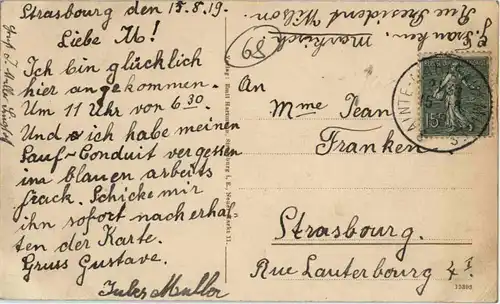 Strasbourg den 15.8.19.
Liebe M!
Ich bin glücklich
hier angekommen.
Um 11 Uhr von 6 30
Und ich habe meinen
Sauf-Conduit vergessen
im blauen arbeits
frack. Schicke mir
ihn sofort nach erhal
ten der Karte.
Gruss Gustave.
Jules Muller
Markirch.
Rue President Wilson.
89
An
Mme Jean
Franken
Strasbourg.
Rue Lauterbourg 4 I
15c
13898